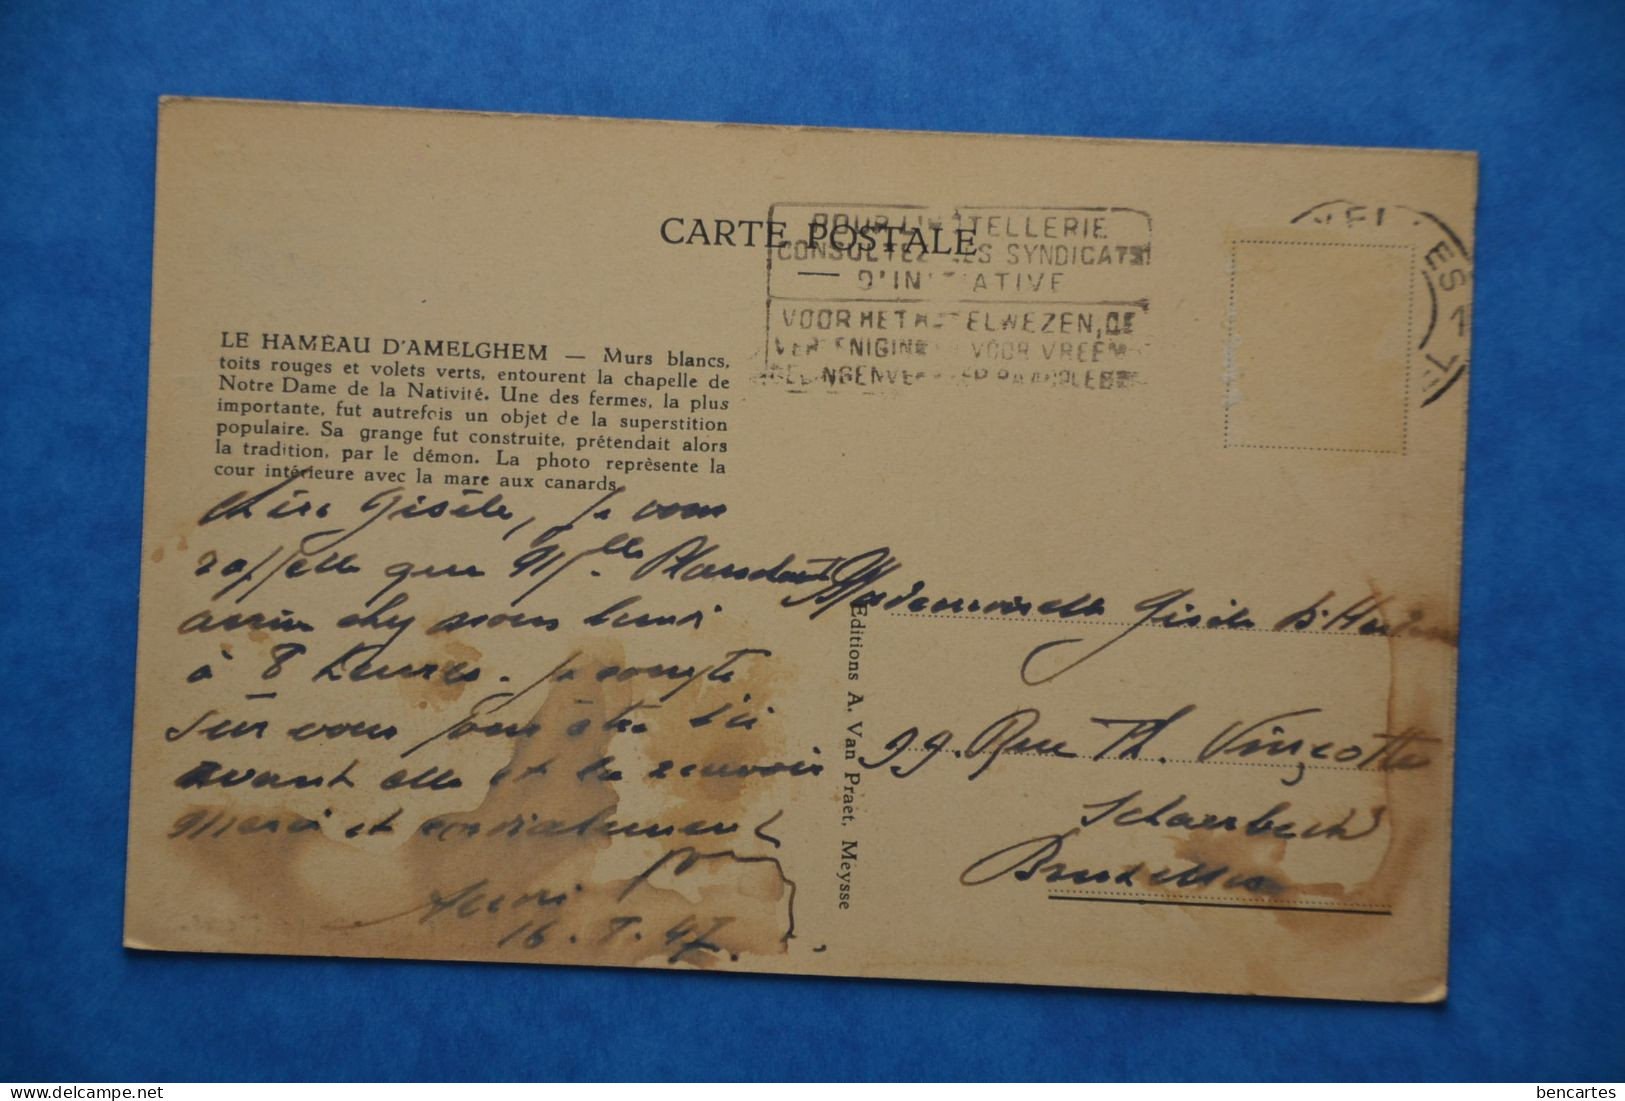 CARTE POSTALE
POUR L'HOTELLERIE
CONSULTEZ LES SYNDICATS
D'INITIATIVE
VOOR HET HOTELWEZEN, DE
VOOR VREEM
LE HAMEAU D'AMELGHEM — Murs blancs,
toits rouges et volets verts, entourent la chapelle de
Notre Dame de la Nativité. Une des fermes, la plus
importante, fut autrefois un objet de la superstition
populaire. Sa grange fut construite, prétendait alors
la tradition, par le démon. La photo représente la
cour intérieure avec la mare aux canards.
Chère Gisèle, je vous
rappelle que Mlle
arrive chez nous lundi
à 8 heures. Je compte
sur vous pour être ici
avant elle et la recevoir
Merci et cordialement
16.8.47.
Editions A. Van Praet, Meysse
Mademoiselle Gisèle
99. Rue Th. Vinçotte
Schaerbeek
Bruxelles
bencartes